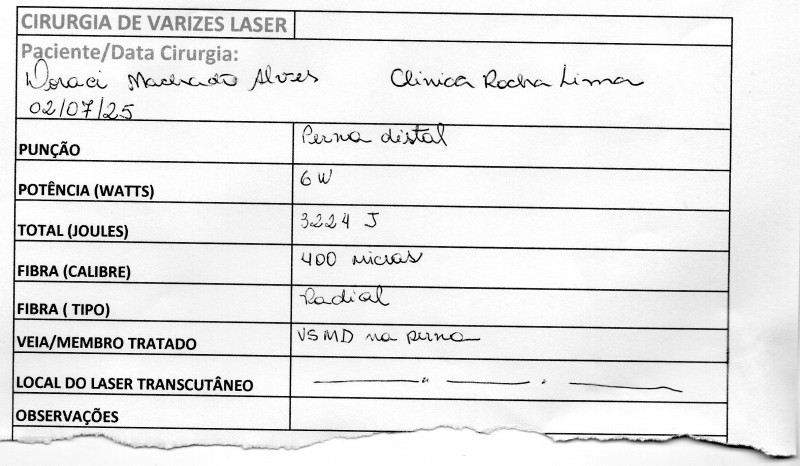 CIRURGIA DE VARIZES LASER
Paciente/Data Cirurgia:
Doraci Machado Alves Clinica Rocha Lima
02/07/25
PUNÇÃO Perna distal
POTÊNCIA (WATTS) 6 W
TOTAL (JOULES) 3224 J
FIBRA (CALIBRE) 400 micras
FIBRA ( TIPO) Radial
VEIA/MEMBRO TRATADO VSMD na perna
LOCAL DO LASER TRANSCUTÂNEO
OBSERVAÇÕES